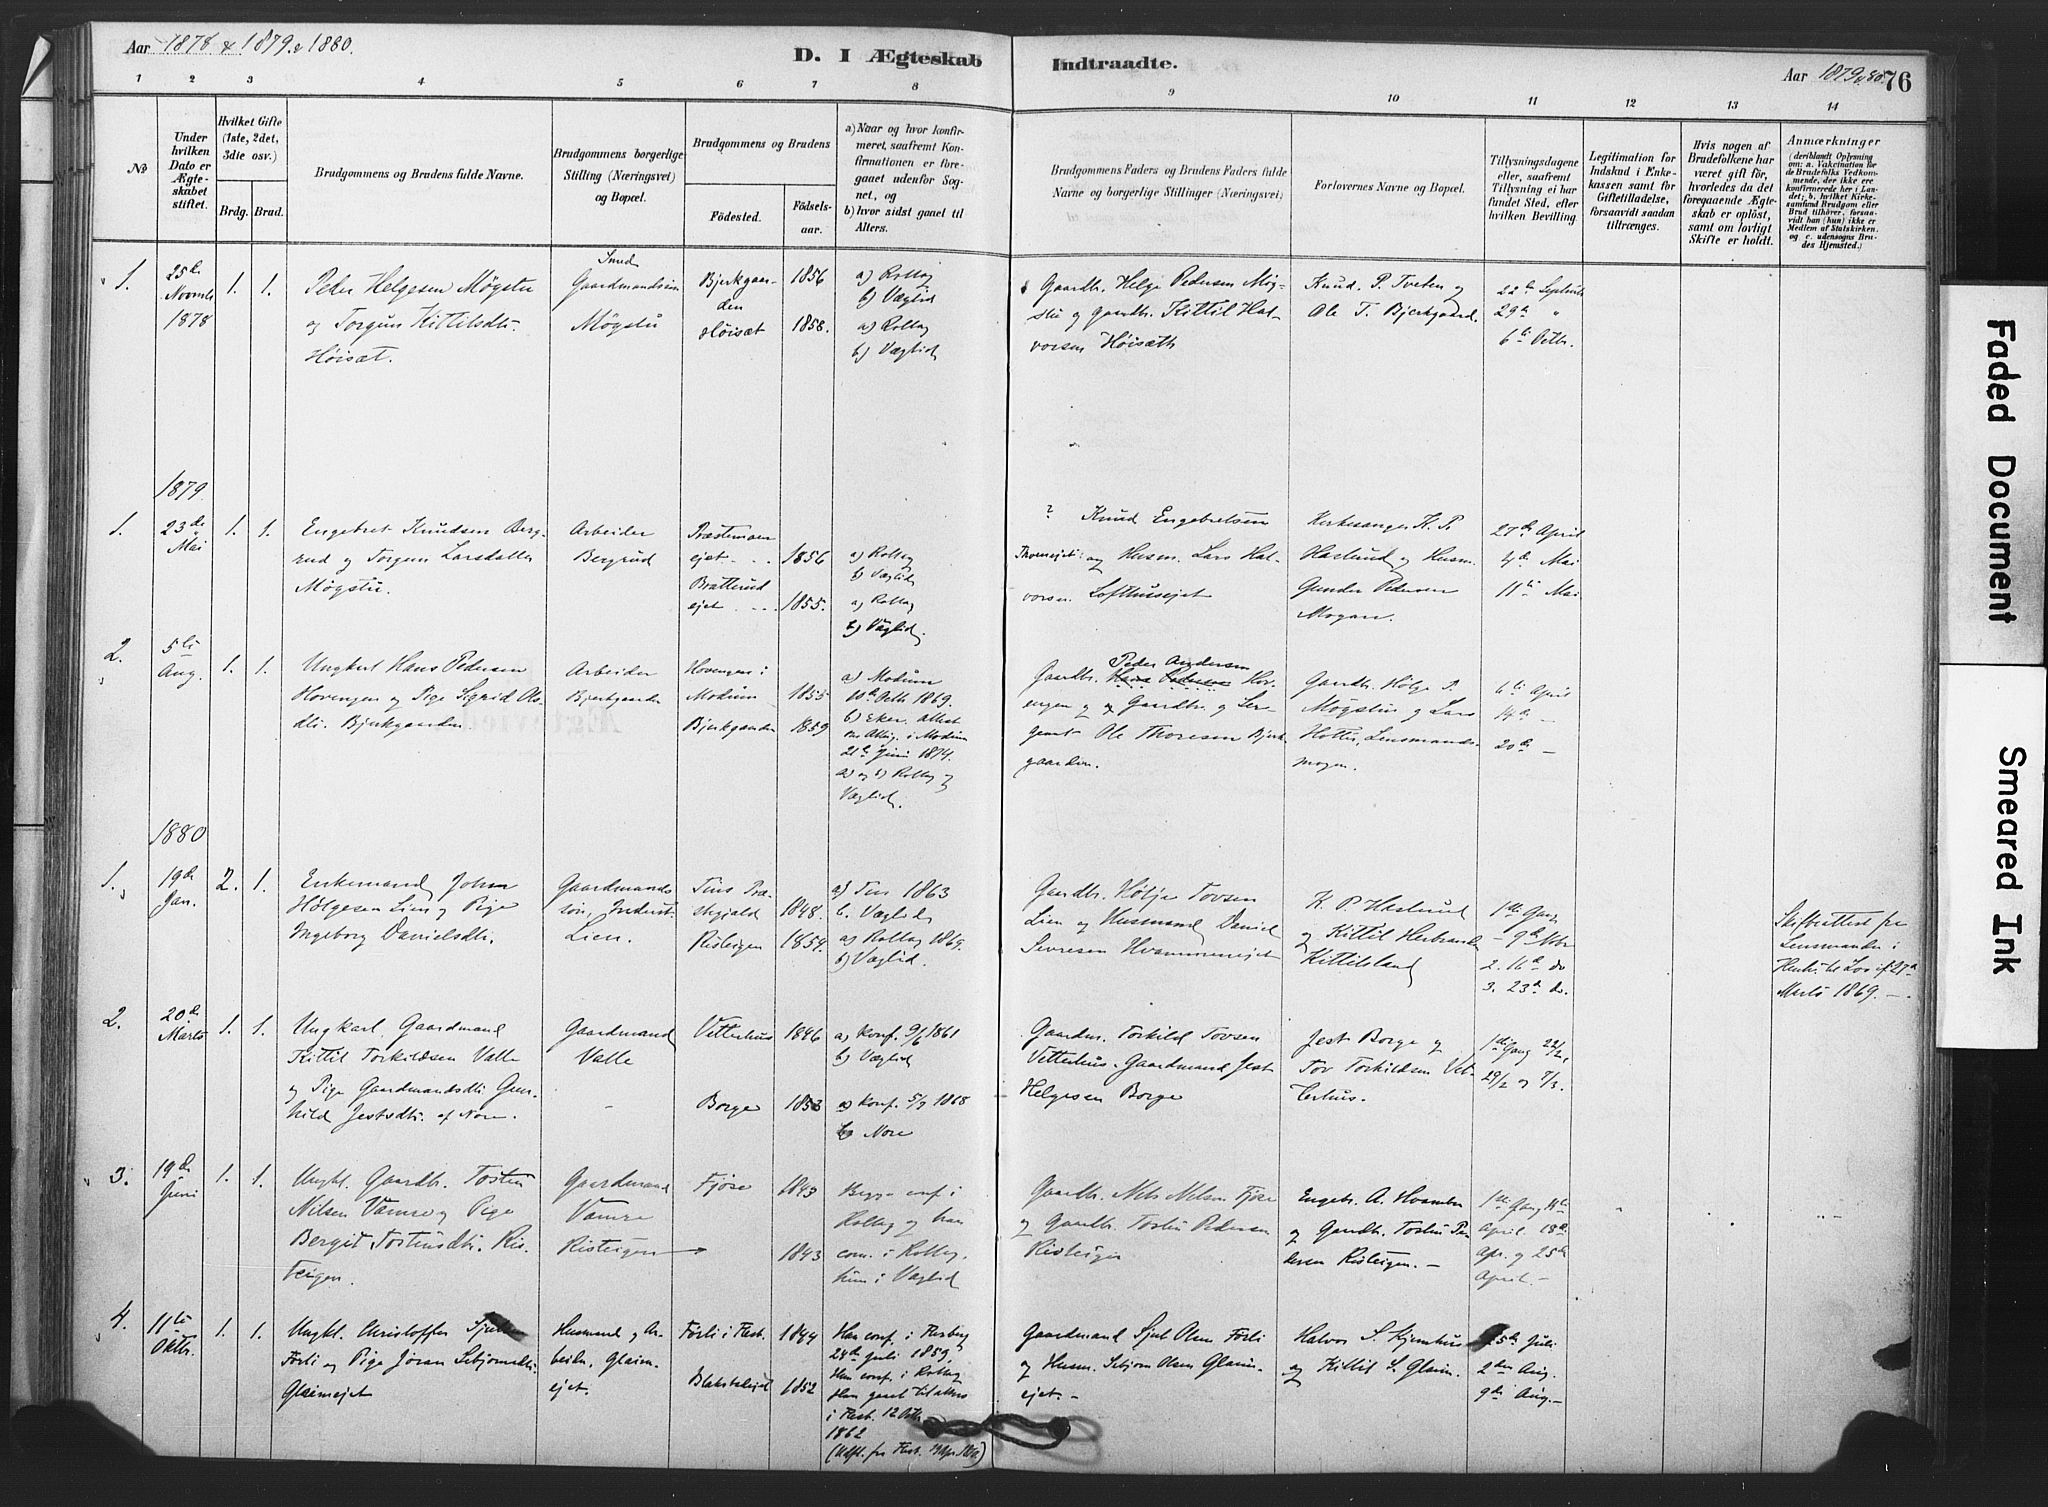 Aar 1878 & 1879 & 1880.
D. I Ægteskab Indtraadte.
Aar 1879 & 80. 76
1 2 3 4 5 6 7 8 9 10 11 12 13 14
No
Under
hvilken
Dato er
Ægte-
skabet
stiftet.
Hvilket Gifte
(1ste, 2det,
3die osv.)
Brdg. Brud.
Brudgommens og Brudens fulde Navne.
Brudgommens borgerlige
Stilling (Næringsvei)
og Bopæl.
Brudgommens og Brudens
Födested.
Födsels-
aar.
a) Naar og hvor konfir-
meret, saafremt Kon-
firmationen er fore-
gaaet udenfor Sog-
net, og
b) hvor sidst gaaet til
Alters.
Brudgommens Faders og Brudens Faders fulde
Navne og borgerlige Stillinger (Næringsvei)
Forlovernes Navne og Bopæl.
Tillysningsdagene
eller, saafremt
Tillysning ei har
fundet Sted, efter
hvilken Bevilling.
Legitimation for
Indskud i Enke-
kassen samt for
Giftetilladelse,
forsaavidt saadan
tiltrænges.
Hvis nogen af
Brudefolkene har
været gift för,
hvorledes da det
foregaaende Ægte-
skab er oplöst,
samt om lovligt
Skifte er holdt.
Anmærkninger
(deriblandt Oplysning
om: a. Vakcination for
de Brudefolks Vedkom-
mende, der ikke ere
konfirmerede her i Lan-
det; b. hvilket Kirke-
samfund Brudgom eller
Brud tilhörer, forsaa-
vidt han (hun) ikke er
Medlem af Statskirken,
og c. udensogns Bru-
des Hjemsted.)
1.
25de
Novemb.
1878
1. 1.
Peder Helgesen Mögstu
og Torgun Kittilsdtr.
Höisæt.
Smed
Gaardmandsön
Mögstu
Bjerkgaar-
den
Höisæt
1856
1858.
a) Rollag
b) Væglid
a) Rollag
b) Væglid
Gaardbr. Helge Pedersen Mög-
stu og Gaardbr. Kittil Hal-
vorsen Höisæth
Knud P. Tveten og
Ole T. Bjerkgaard.
22de Septemb
29de "
6te Octbr.
1879
1.
23de
Mai
1. 1.
Engebret Knudsen Berg-
rud og Torgun Larsdatter
Mögstu.
Arbeider
Bergrud
Præstemoen
ejet . . .
Bratterud
ejet . . .
1856
1855.
a) Rollag
b) Væglid
a) Rollag
b) Væglid.
? Knud Engebretsen
og Husm. Lars Hal-
vorsen Lofthusejet
Kirkesanger K. P.
Haslerud og Husm.
Gunder Pedersen
Mogan.
27de April
4de Mai
11te Mai
2.
5te
Aug.
1. 1.
Ungkarl Hans Pedersen
Hovengen og Pige Sigrid Ols-
dtr. Bjerkgaarden
Arbeider
Bjerkgaarden
Hovengen i
Modum
Bjerkgaarden
1855
1859
a) Modum
10de Octb 1869.
b) Eker. Attest
om Altrg. i Modum
21de Juni 1874.
a) og b) Rollag og
Væglid.
Peder Andersen
Gaardbr. Hans Pedersen Hov-
engen og Gaardbr. og Ser-
gent Ole Thoresen Bjerk-
gaarden.
Gaardbr. Hölge P.
Mögstu og Lars
Hottus, Lensmands-
mogen.
6te April
14de —
20de —
1880
1.
19de
Jan.
2. 1.
Enkemand Johan
Hölgesen Lien og Pige
Ingeborg Danielsdtr.
Gaardmands
sön, Inderst
Lien.
Tins Præ-
stegjeld
Risteigen
1848.
1854.
a) Tin 1863
b. Væglid
a) Rollag 1869.
b) Væglid.
Gaardbr. Hölje Tovsen
Lien og Husmand Daniel
Sevresen Hvammenejet
K. P. Haslerud
og Kittil Herbrands
Kittilsland
1ste Gang
— 9de Nbr
2. 16de do
3. 23de do.
Skifteattest fra
Lensmanden i
27de
Marts 1869. —
2.
20de
Marts
1. 1.
Ungkarl Gaardmand
Kittil Torkildsen Valle
og Pige Gaardmandsdtr. Gun-
hild Jestsdtr. af Nore.
Gaardmand
Valle
Vetterhus
Borge
1846
1853
a) Konf. 9/6 1861
b) Væglid
a) Konf. 5/9 1868
b) Nore
Gaardm. Torkild Tovsen
Vetterhus. Gaardmand Jest
Helgesen Borge
Jest Borge og
Tov Torkildsen Vet-
terhus.
1ste Gang 22/2,
29/2 og 7/3.
3.
19de
Juni
1. 1.
Ungkl. Gaardbr. Tosten
Nilsen Vamre og Pige
Bergit Tostensdtr. Ris-
teigen.
Gaardmand
Vamre
Risteigen
Fjöse
1843
1843
Begge conf. i
Rollag og han
com. i Rollag,
hun i Væglid
Gaardbr. Nels Nelsen Fjöse
og Gaardbr. Tosten Pedersen
Risteigen
Engebr. A. Hvamben
og Gaardbr. Tosten Pe-
dersen Risteigen. —
1ste Gang 11te
April 18de
Apr. og 25de
April. —
4.
11te
Oktbr.
1. 1.
Ungkl. Christoffer
Förli og Pige Jöran Sebjörnsdtr.
Glaimejet
Husmand og Ar-
beider, Glaim-
ejet.
Förli i Flesb.
Blakstadejet
1844
1852
Han conf. i Flesberg
24de Juli 1859.
Hun conf. i Rollag
Han gaaet til alters
i Flesb. 12 Octbr
1862
Gaardmand Sjul Olsen Förli
og Husm. Sebjörn Olsen Glaim-
ejet. —
Halvor S. Kjemhus
og Kittil S. Glaim.
25de Juli
2den Aug.
9de Aug. —
Faded Document
Smeared Ink